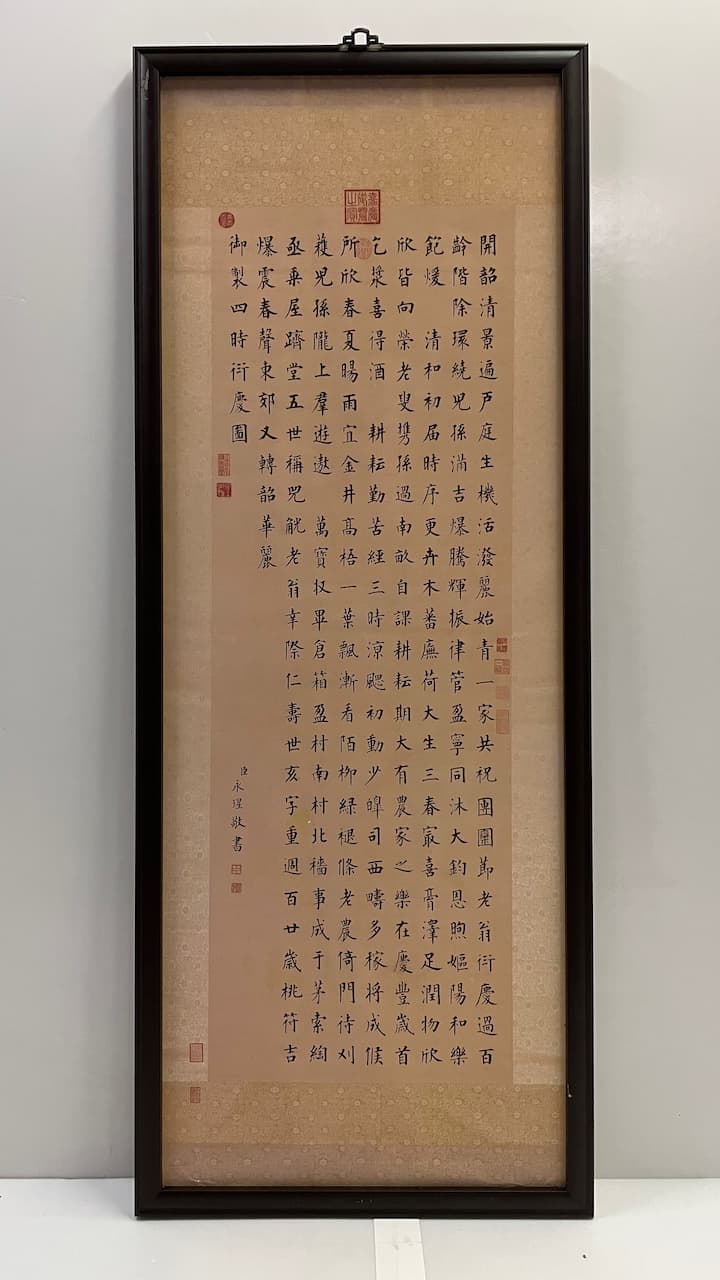 嘉慶御覽之寶
開韶清景遍戸庭生機活潑麗始青一家共祝團圞節老翁衍慶過百
齡階除環繞兒孫滿吉爆騰輝振律管盈寧同沐大鈞恩煦嫗陽和樂
飽煖 清和初届時序更卉木蕃廡荷大生三春冣喜膏澤足潤物欣
欣皆向榮老叟携孫過南畝自課耕耘期大有農家之樂在慶豐歲首
乞漿喜得酒 耕耘勤苦經三時涼颸初動少皥司西疇多稼將成候
所欣春夏暘雨宜金井髙梧一葉飄漸看陌柳緑褪條老農倚門待刈
穫兒孫隴上羣遊遨 萬寶収畢倉箱盈村南村北穡事成于茅索綯
亟乗屋躋堂五世稱兕觥老翁幸際仁壽世亥字重週百廿歲桃符吉
爆震春聲東郊又轉韶華麗
御製四時衍慶圖
臣永瑆敬書